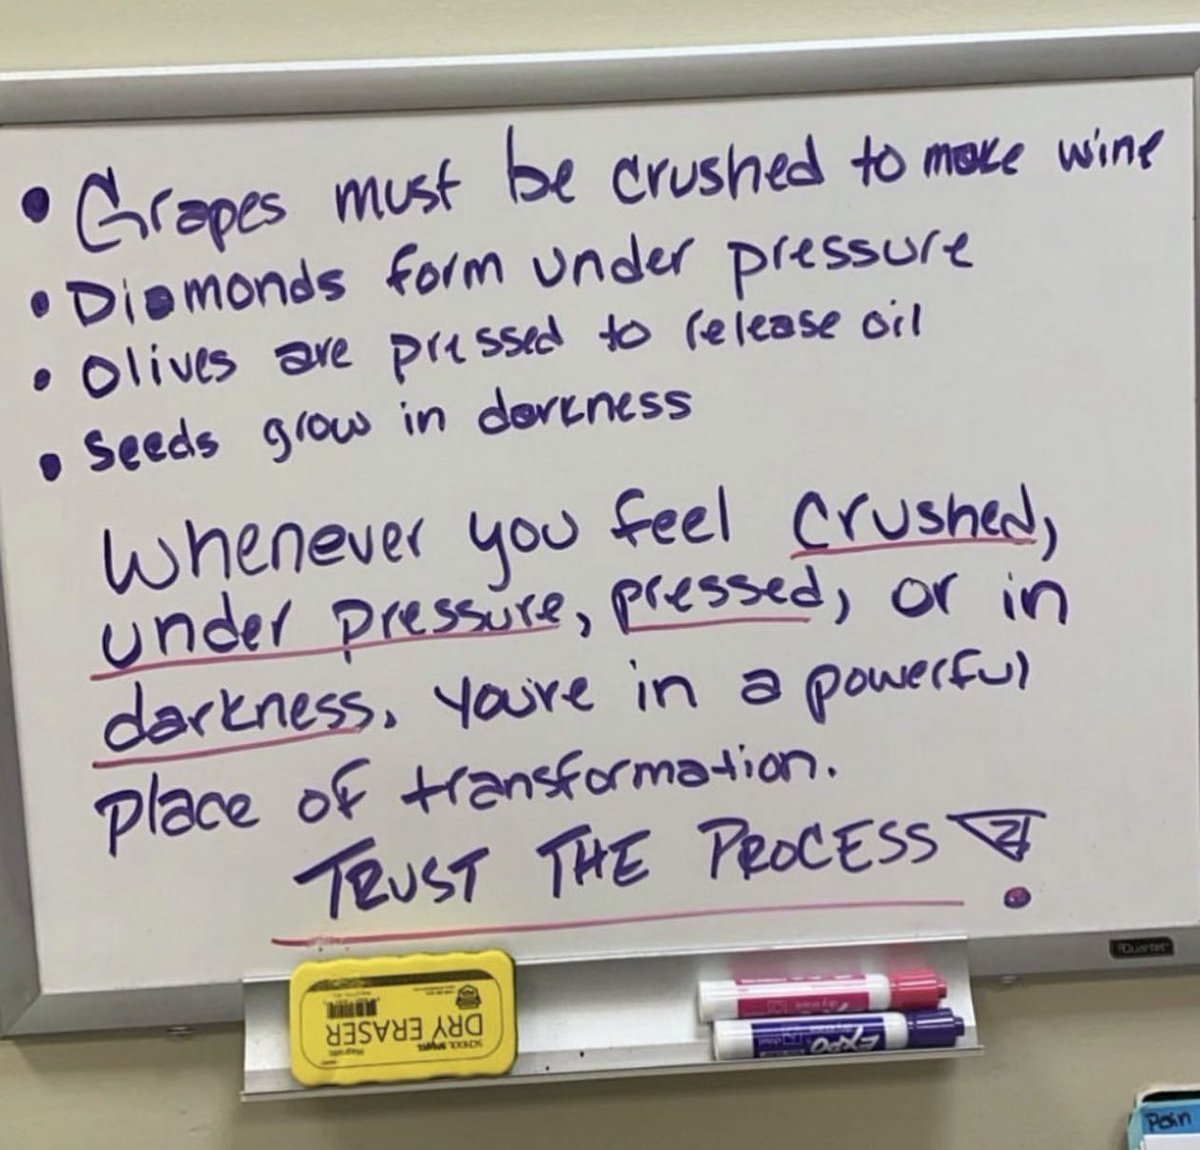 • Grapes must be crushed to make wine
• Diamonds form under pressure
• Olives are pressed to release oil
• Seeds grow in darkness
Whenever you feel crushed,
under pressure, pressed, or in
darkness. You're in a powerful
place of transformation.
TRUST THE PROCESS!
Quartet
SCHOOL SMART
DRY ERASER
Magnetic
EXPO
Pain